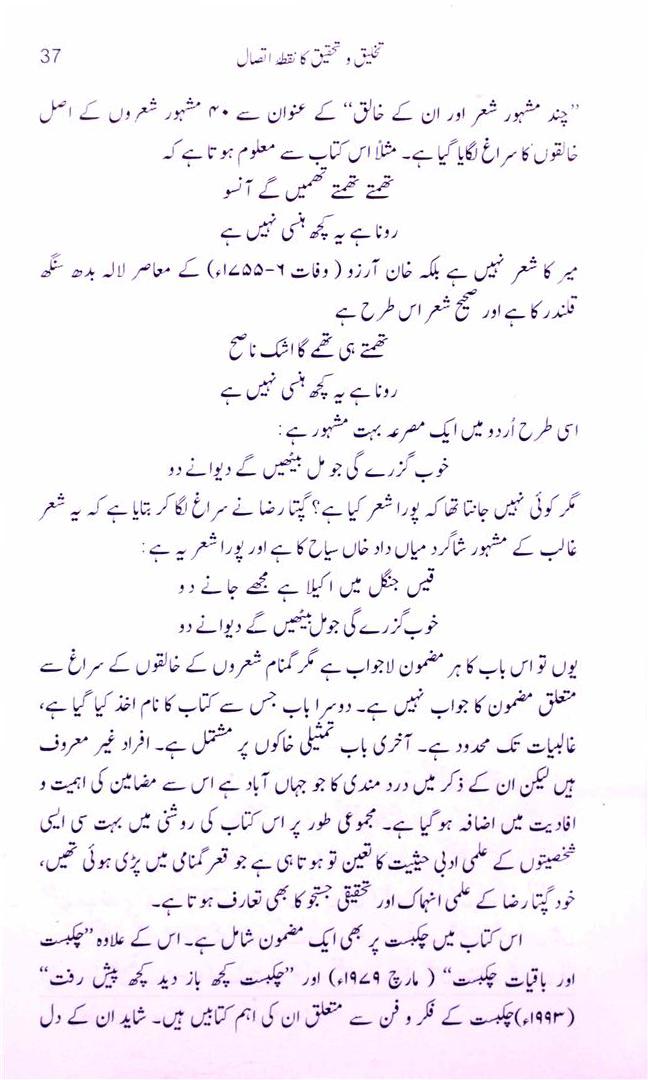 37 تخلیق و تحقیق کا نقطۂ اتصال
”چند مشہور شعر اور ان کے خالق“ کے عنوان سے ۴۰ مشہور شعروں کے اصل
خالقوں کا سراغ لگایا گیا ہے۔ مثلاً اس کتاب سے معلوم ہوتا ہے کہ
تھمتے تھمتے تھمیں گے آنسو
رونا ہے یہ کچھ ہنسی نہیں ہے
میر کا شعر نہیں ہے بلکہ خان آرزو (وفات ۶-۱۷۵۵ء) کے معاصر لالہ بدھ سنگھ
قلندر کا ہے اور صحیح شعر اس طرح ہے
تھمتے ہی تھمے گا اشک ناصح
رونا ہے یہ کچھ ہنسی نہیں ہے
اسی طرح اُردو میں ایک مصرعہ بہت مشہور ہے:
خوب گزرے گی جو مل بیٹھیں گے دیوانے دو
مگر کوئی نہیں جانتا تھا کہ پورا شعر کیا ہے؟ گپتا رضا نے سراغ لگا کر بتایا ہے کہ یہ شعر
غالب کے مشہور شاگرد میاں داد خاں سیاح کا ہے اور پورا شعر یہ ہے:
قیس جنگل میں اکیلا ہے مجھے جانے دو
خوب گزرے گی جو مل بیٹھیں گے دیوانے دو
یوں تو اس باب کا ہر مضمون لاجواب ہے مگر گمنام شعروں کے خالقوں کے سراغ سے
متعلق مضمون کا جواب نہیں ہے۔ دوسرا باب جس سے کتاب کا نام اخذ کیا گیا ہے،
غالبیات تک محدود ہے۔ آخری باب تمثیلی خاکوں پر مشتمل ہے۔ افراد غیر معروف
ہیں لیکن ان کے ذکر میں درد مندی کا جو جہاں آباد ہے اس سے مضامین کی اہمیت و
افادیت میں اضافہ ہو گیا ہے۔ مجموعی طور پر اس کتاب کی روشنی میں بہت سی ایسی
شخصیتوں کے علمی ادبی حیثیت کا تعین تو ہوتا ہی ہے جو قعر گمنامی میں پڑی ہوئی تھیں،
خود گپتا رضا کے علمی انہماک اور تحقیقی جستجو کا بھی تعارف ہوتا ہے۔
اس کتاب میں چکبست پر بھی ایک مضمون شامل ہے۔ اس کے علاوہ ”چکبست
اور باقیات چکبست“ (مارچ ۱۹۷۹ء) اور ”چکبست کچھ باز دید کچھ پیش رفت“
(۱۹۹۳ء) چکبست کے فکر و فن سے متعلق ان کی اہم کتابیں ہیں۔ شاید ان کے دل